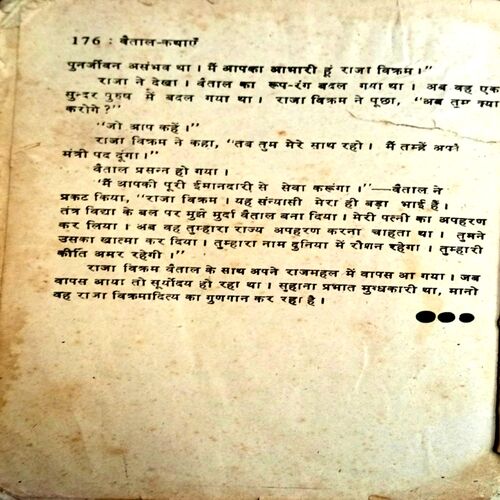 176 : बैताल-कथाएँ
पुनर्जीवन असंभव था । मैं आपका आभारी हूं राजा विक्रम ।"
राजा ने देखा । बैताल का रूप-रंग बदल गया था । अब वह एक
सुन्दर पुरुष में बदल गया था । राजा विक्रम ने पूछा, "अब तुम क्या
करोगे ?"
"जो आप कहें ।"
राजा विक्रम ने कहा, "तब तुम मेरे साथ रहो । मैं तुम्हें अपना
मंत्री पद दूंगा ।"
बैताल प्रसन्न हो गया ।
"मैं आपकी पूरी ईमानदारी से सेवा करूंगा ।"—बैताल ने
प्रकट किया, "राजा विक्रम । यह संन्यासी मेरा ही बड़ा भाई है ।
तंत्र विद्या के बल पर मुझे मुर्दा बैताल बना दिया । मेरी पत्नी का अपहरण
कर लिया । अब वह तुम्हारा राज्य अपहरण करना चाहता था । तुमने
उसका खात्मा कर दिया । तुम्हारा नाम दुनिया में रौशन रहेगा । तुम्हारी
कीर्ति अमर रहेगी ।"
राजा विक्रम बैताल के साथ अपने राजमहल में वापस आ गया । जब
वापस आया तो सूर्योदय हो रहा था । सुहाना प्रभात मुग्धकारी था, मानो
वह राजा विक्रमादित्य का गुणगान कर रहा है ।